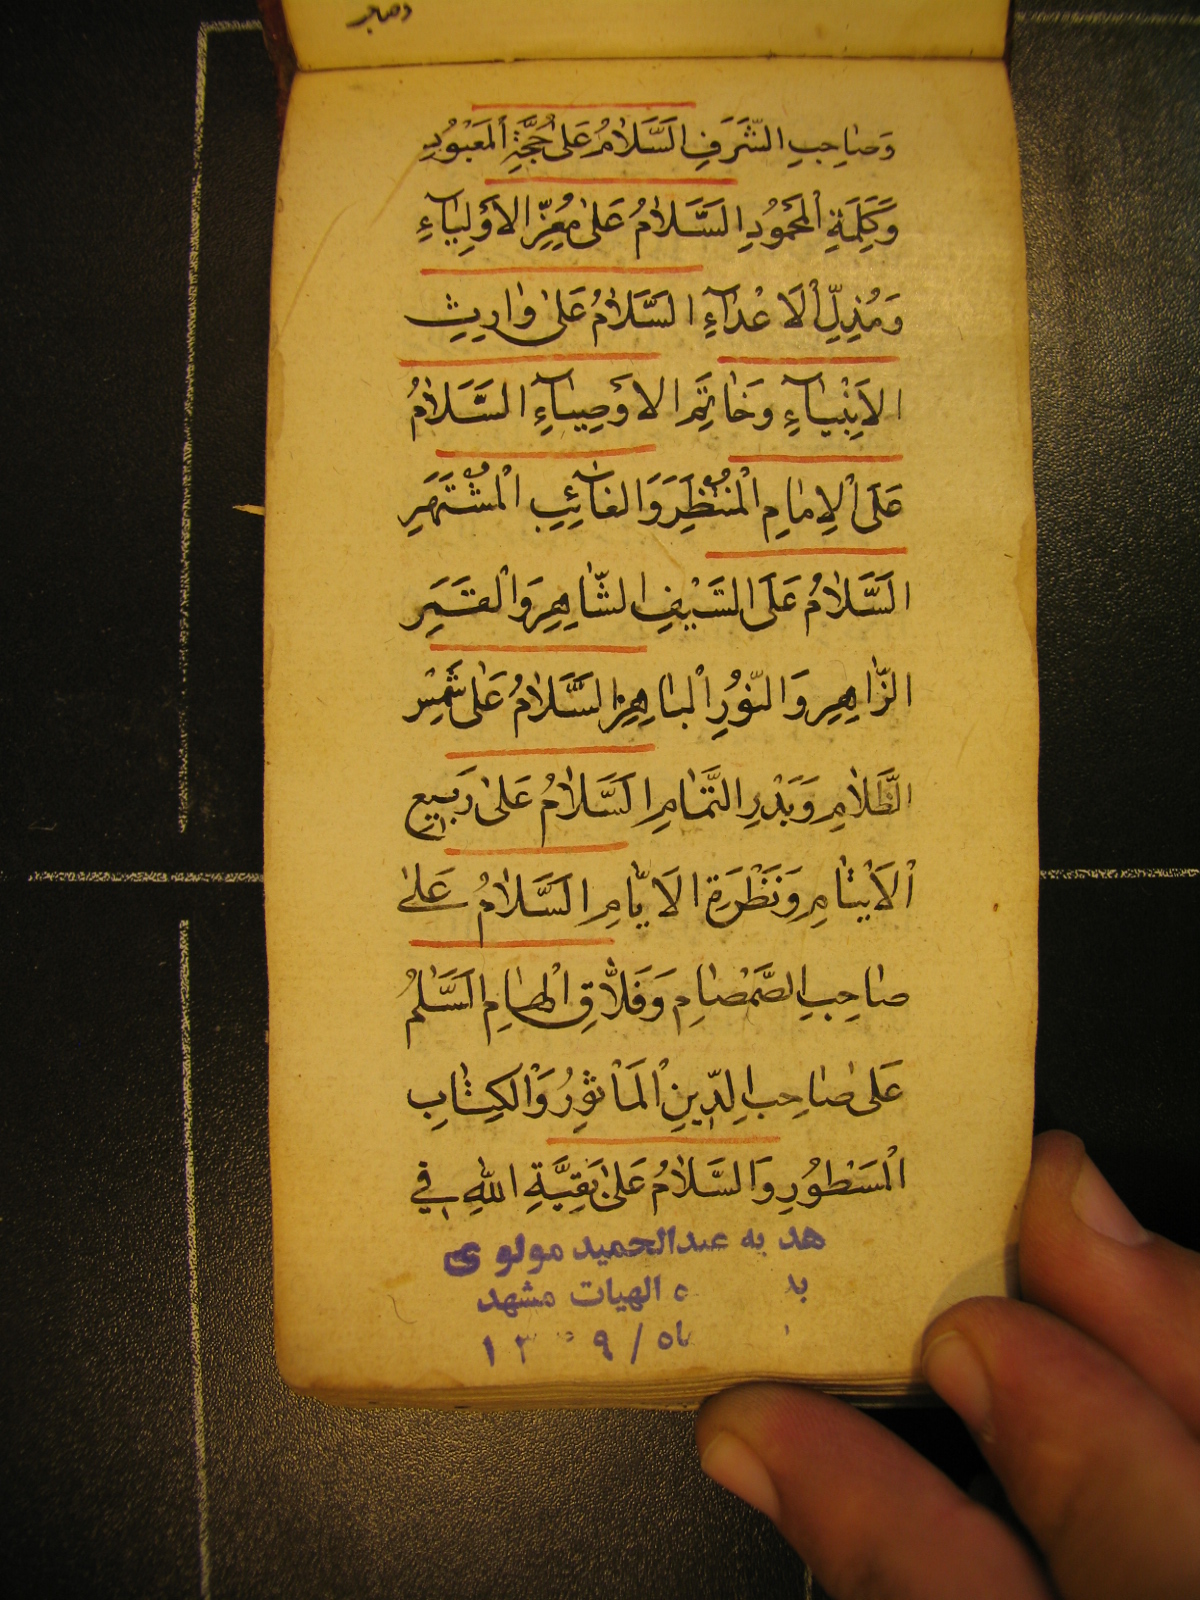 وصاحب
وَصاحِبِ الشَّرَفِ السَّلامُ عَلىٰ حُجَّةِ الْمَعْبُودِ
وَكَلِمَةِ الْمَحْمُودِ السَّلامُ عَلىٰ مُعِزِّ الاَوْلِيآءِ
وَمُذِلِّ الْاَعْدآءِ السَّلامُ عَلىٰ وارِثِ
الاَنْبِيآءِ وَخاتَِمِ الاَوْصِيآءِ السَّلامُ
عَلَى الْاِمامِ الْمُنْتَظَِرِ وَالغآئِبِ الْمُشْتَهَرِ
السَّلامُ عَلَى السَّيْفِ الشّاهِرِ وَالْقَمَرِ
الزّاهِرِ وَالنُّورِ الْباهِرِ السَّلامُ عَلىٰ شَمْسِ
الظَّلامِ وَبَدْرِ التَّمامِ السَّلامُ عَلىٰ رَبيعِ
الْاَيْتامِ وَنَظْرَةِ الاَيّامِ السَّلامُ عَلىٰ
صاحِبِ الصَّمْصامِ وَفَلّاقِ الْهامِ السَّلٰمُ
عَلىٰ صاحِبِ الدّينِ الْمَاْثُورِ وَالْكِتابِ
الْمَسْطُورِ وَالسَّلامُ عَلىٰ بَقِيَّةِ اللهِ في
هديه عبدالحميد مولوی
الهیات مشهد